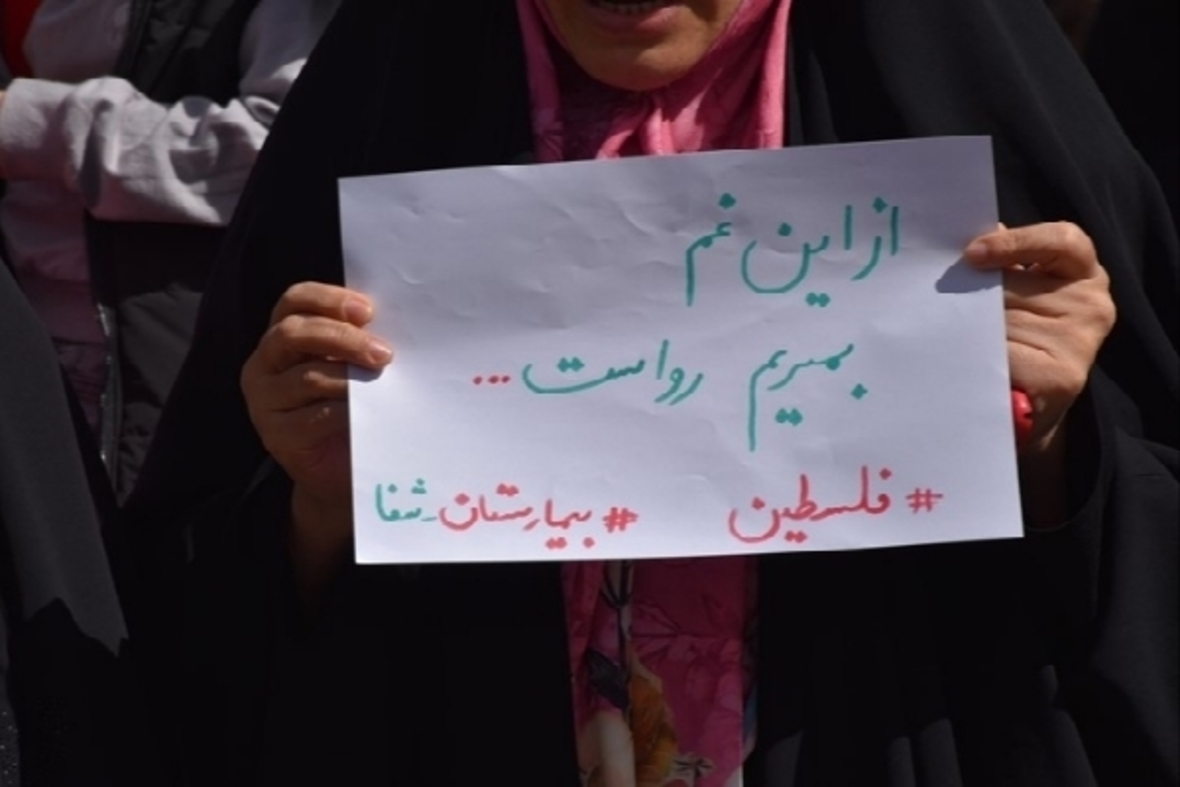 از این غم
بمیریم رواست...
#فلسطین #بیمارستان_شفا